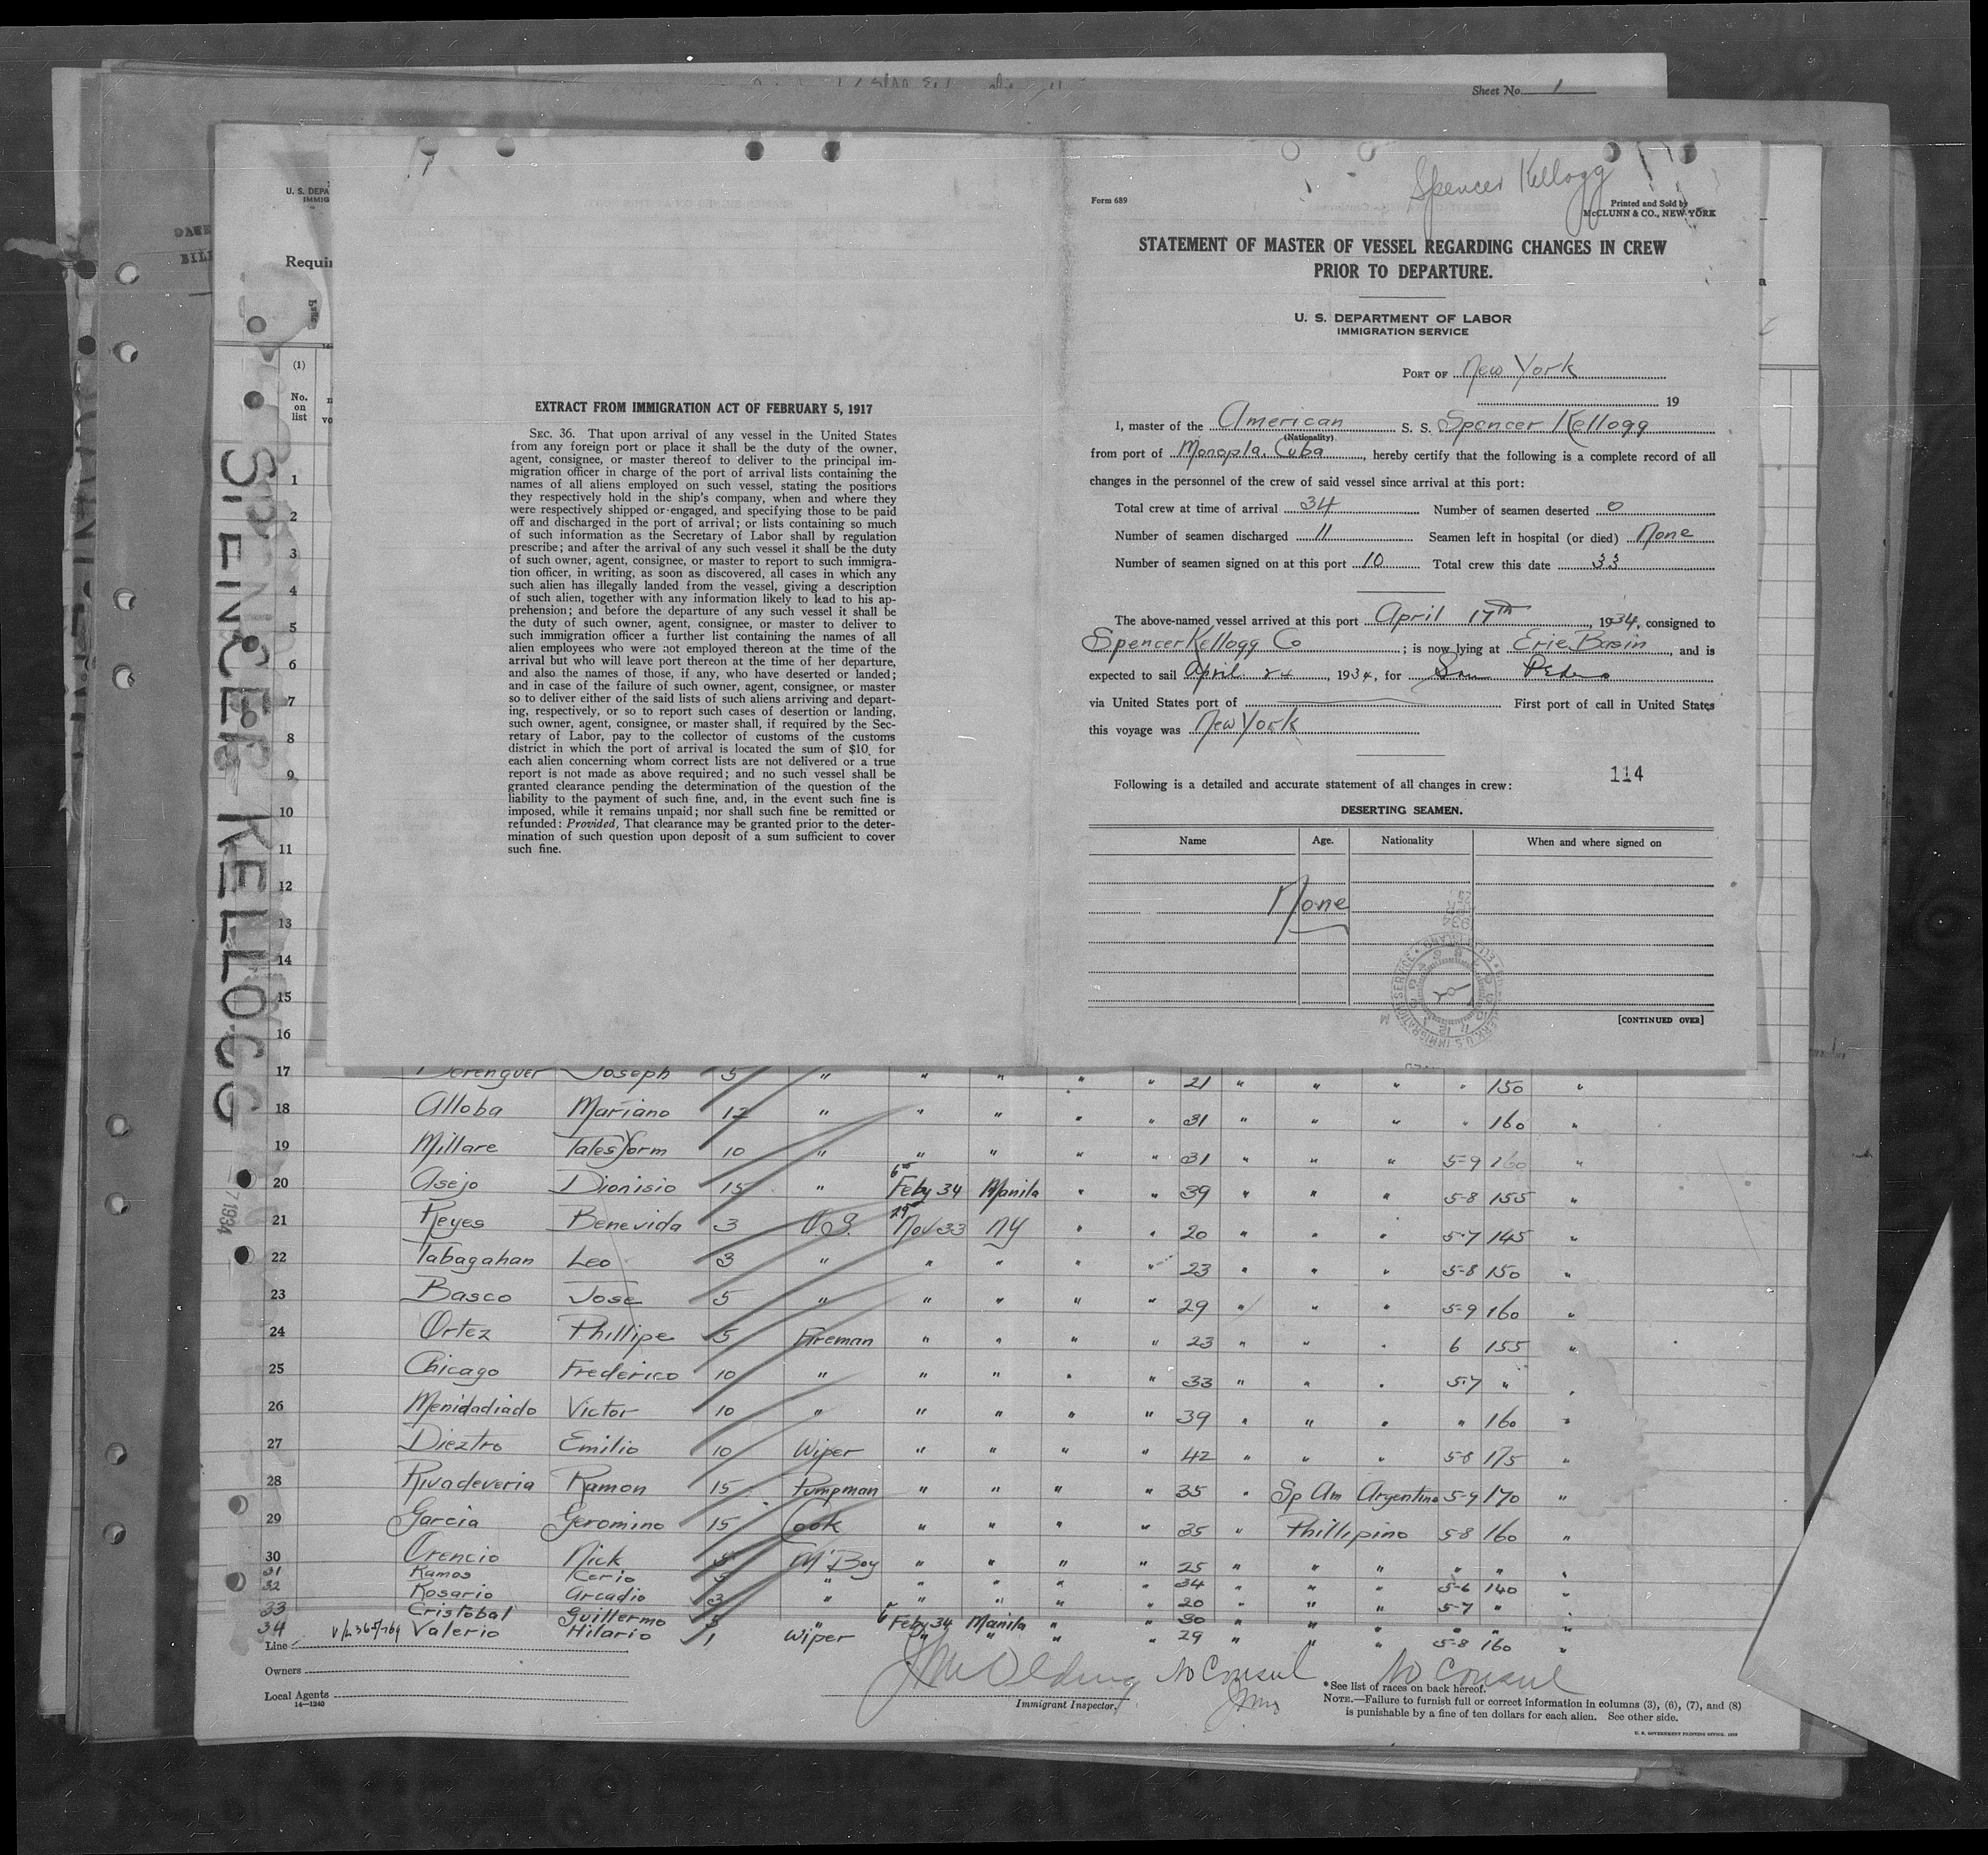 Sheet No. 1
U. S. DEPA
IMMIG
Requir
(1)
No.
on
list
SPENCER KELLOGG
EXTRACT FROM IMMIGRATION ACT OF FEBRUARY 5, 1917
SEC. 36. That upon arrival of any vessel in the United States
from any foreign port or place it shall be the duty of the owner,
agent, consignee, or master thereof to deliver to the principal im-
migration officer in charge of the port of arrival lists containing the
names of all aliens employed on such vessel, stating the positions
they respectively hold in the ship's company, when and where they
were respectively shipped or engaged, and specifying those to be paid
off and discharged in the port of arrival; or lists containing so much
of such information as the Secretary of Labor shall by regulation
prescribe; and after the arrival of any such vessel it shall be the duty
of such owner, agent, consignee, or master to report to such immigra-
tion officer, in writing, as soon as discovered, all cases in which any
such alien has illegally landed from the vessel, giving a description
of such alien, together with any information likely to lead to his ap-
prehension; and before the departure of any such vessel it shall be
the duty of such owner, agent, consignee, or master to deliver to
such immigration officer a further list containing the names of all
alien employees who were not employed thereon at the time of the
arrival but who will leave port thereon at the time of her departure,
and also the names of those, if any, who have deserted or landed;
and in case of the failure of such owner, agent, consignee, or master
so to deliver either of the said lists of such aliens arriving and depart-
ing, respectively, or so to report such cases of desertion or landing,
such owner, agent, consignee, or master shall, if required by the Sec-
retary of Labor, pay to the collector of customs of the customs
district in which the port of arrival is located the sum of $10 for
each alien concerning whom correct lists are not delivered or a true
report is not made as above required; and no such vessel shall be
granted clearance pending the determination of the question of the
liability to the payment of such fine, and, in the event such fine is
imposed, while it remains unpaid; nor shall such fine be remitted or
refunded: Provided, That clearance may be granted prior to the deter-
mination of such question upon deposit of a sum sufficient to cover
such fine.
Spencer Kellogg
Form 689
Printed and Sold by
McCLUNN & CO., NEW YORK
STATEMENT OF MASTER OF VESSEL REGARDING CHANGES IN CREW
PRIOR TO DEPARTURE.
U. S. DEPARTMENT OF LABOR
IMMIGRATION SERVICE
PORT OF New York
19
I, master of the American S. S. Spencer Kellogg
(Nationality)
from port of Monopla, Cuba, hereby certify that the following is a complete record of all
changes in the personnel of the crew of said vessel since arrival at this port:
Total crew at time of arrival 34 Number of seamen deserted 0
Number of seamen discharged 11 Seamen left in hospital (or died) None
Number of seamen signed on at this port 10 Total crew this date 33
The above-named vessel arrived at this port April 17th, 1934, consigned to
Spencer Kellogg Co; is now lying at Erie Basin, and is
expected to sail April 24, 1934, for San Pedro
via United States port of First port of call in United States
this voyage was New York
114
Following is a detailed and accurate statement of all changes in crew:
DESERTING SEAMEN.
Name Age. Nationality When and where signed on
None
[CONTINUED OVER]
1
2
3
4
5
6
7
8
9
10
11
12
13
14
15
16
17 Berenguer Joseph 5 " " " " " 21 " " " " 150 "
18 Alloba Mariano 12 " " " " " 31 " " " " 160 "
19 Millare Talesform 10 " " " " " 31 " " " 5-9 160 "
20 Asejo Dionisio 15 " 6th Feby 34 Manila " " 39 " " " 5-8 155 "
21 Reyes Benevida 3 O.S. 29 Nov 33 NY " " 20 " " " 5-7 145 "
22 Tabagahan Leo 3 " " " " " 23 " " " 5-8 150 "
23 Basco Jose 5 " " " " " 29 " " " 5-9 160 "
24 Ortez Phillipe 5 Fireman " " " " 23 " " " 6 155 "
25 Chicago Frederico 10 " " " " " 33 " " " 5-7 " "
26 Menidadiado Victor 10 " " " " " 39 " " " " 160 "
27 Dieztro Emilio 10 Wiper " " " " 42 " " " 5-8 175 "
28 Rivadeveria Ramon 15 Pumpman " " " " 35 " Sp Am Argentina 5-9 170 "
29 Garcia Geromino 15 Cook " " " " 35 " Phillipino 5-8 160 "
30 Orencio Nick 5 M'Boy " " " " 25 " " " " " "
31 Ramos Kerio 5 " " " " " 34 " " " 5-6 140 "
32 Rosario Arcadio 3 " " " " " 20 " " " 5-7 " "
33 Cristobal Guillermo 5 " 6 Feby 34 Manila " " 30 " " " " " "
34 Valerio Hilario 1 Wiper " " " " 29 " " " 5-8 160 "
Line
Owners
Local Agents
14-1240
Immigrant Inspector.
No Consul
No Consul
* See list of races on back hereof.
NOTE.—Failure to furnish full or correct information in columns (3), (6), (7), and (8)
is punishable by a fine of ten dollars for each alien. See other side.
U. S. GOVERNMENT PRINTING OFFICE